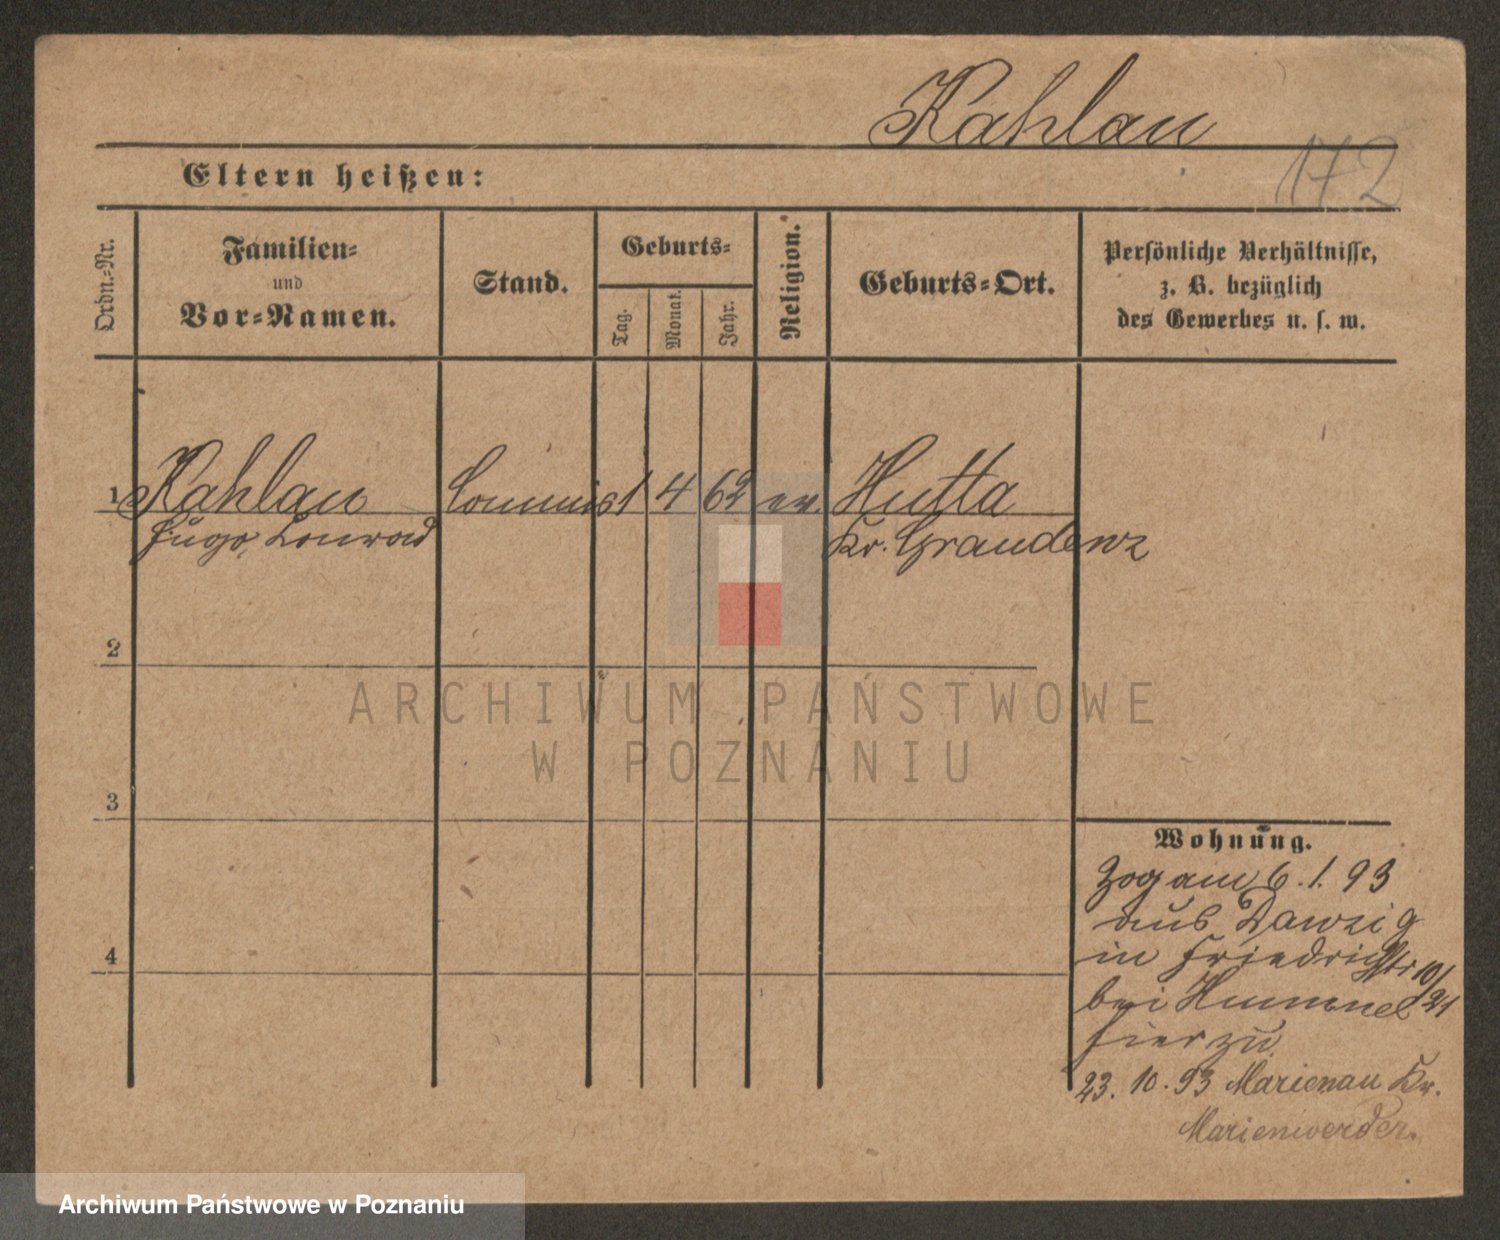 Kahlau
172
Eltern heißen:
Ordn.-Nr.
Familien-
und
Vor-Namen.
Stand.
Geburts-
Tag.
Monat.
Jahr.
Religion.
Geburts-Ort.
Persönliche Verhältnisse,
z. B. bezüglich
des Gewerbes u. s. w.
1 Kahlau Commis 1 4 62 ev. Hutta
Hugo, Conrad Kr. Graudenz
2
ARCHIWUM PAŃSTWOWE
W POZNANIU
3
Wohnung.
Zog am 6. 1. 93
aus Danzig
in Friedrichstr 10/21
bei Hummel
hier zu
4
23. 10. 93 Marienau Kr.
Marienwerder.
Archiwum Państwowe w Poznaniu